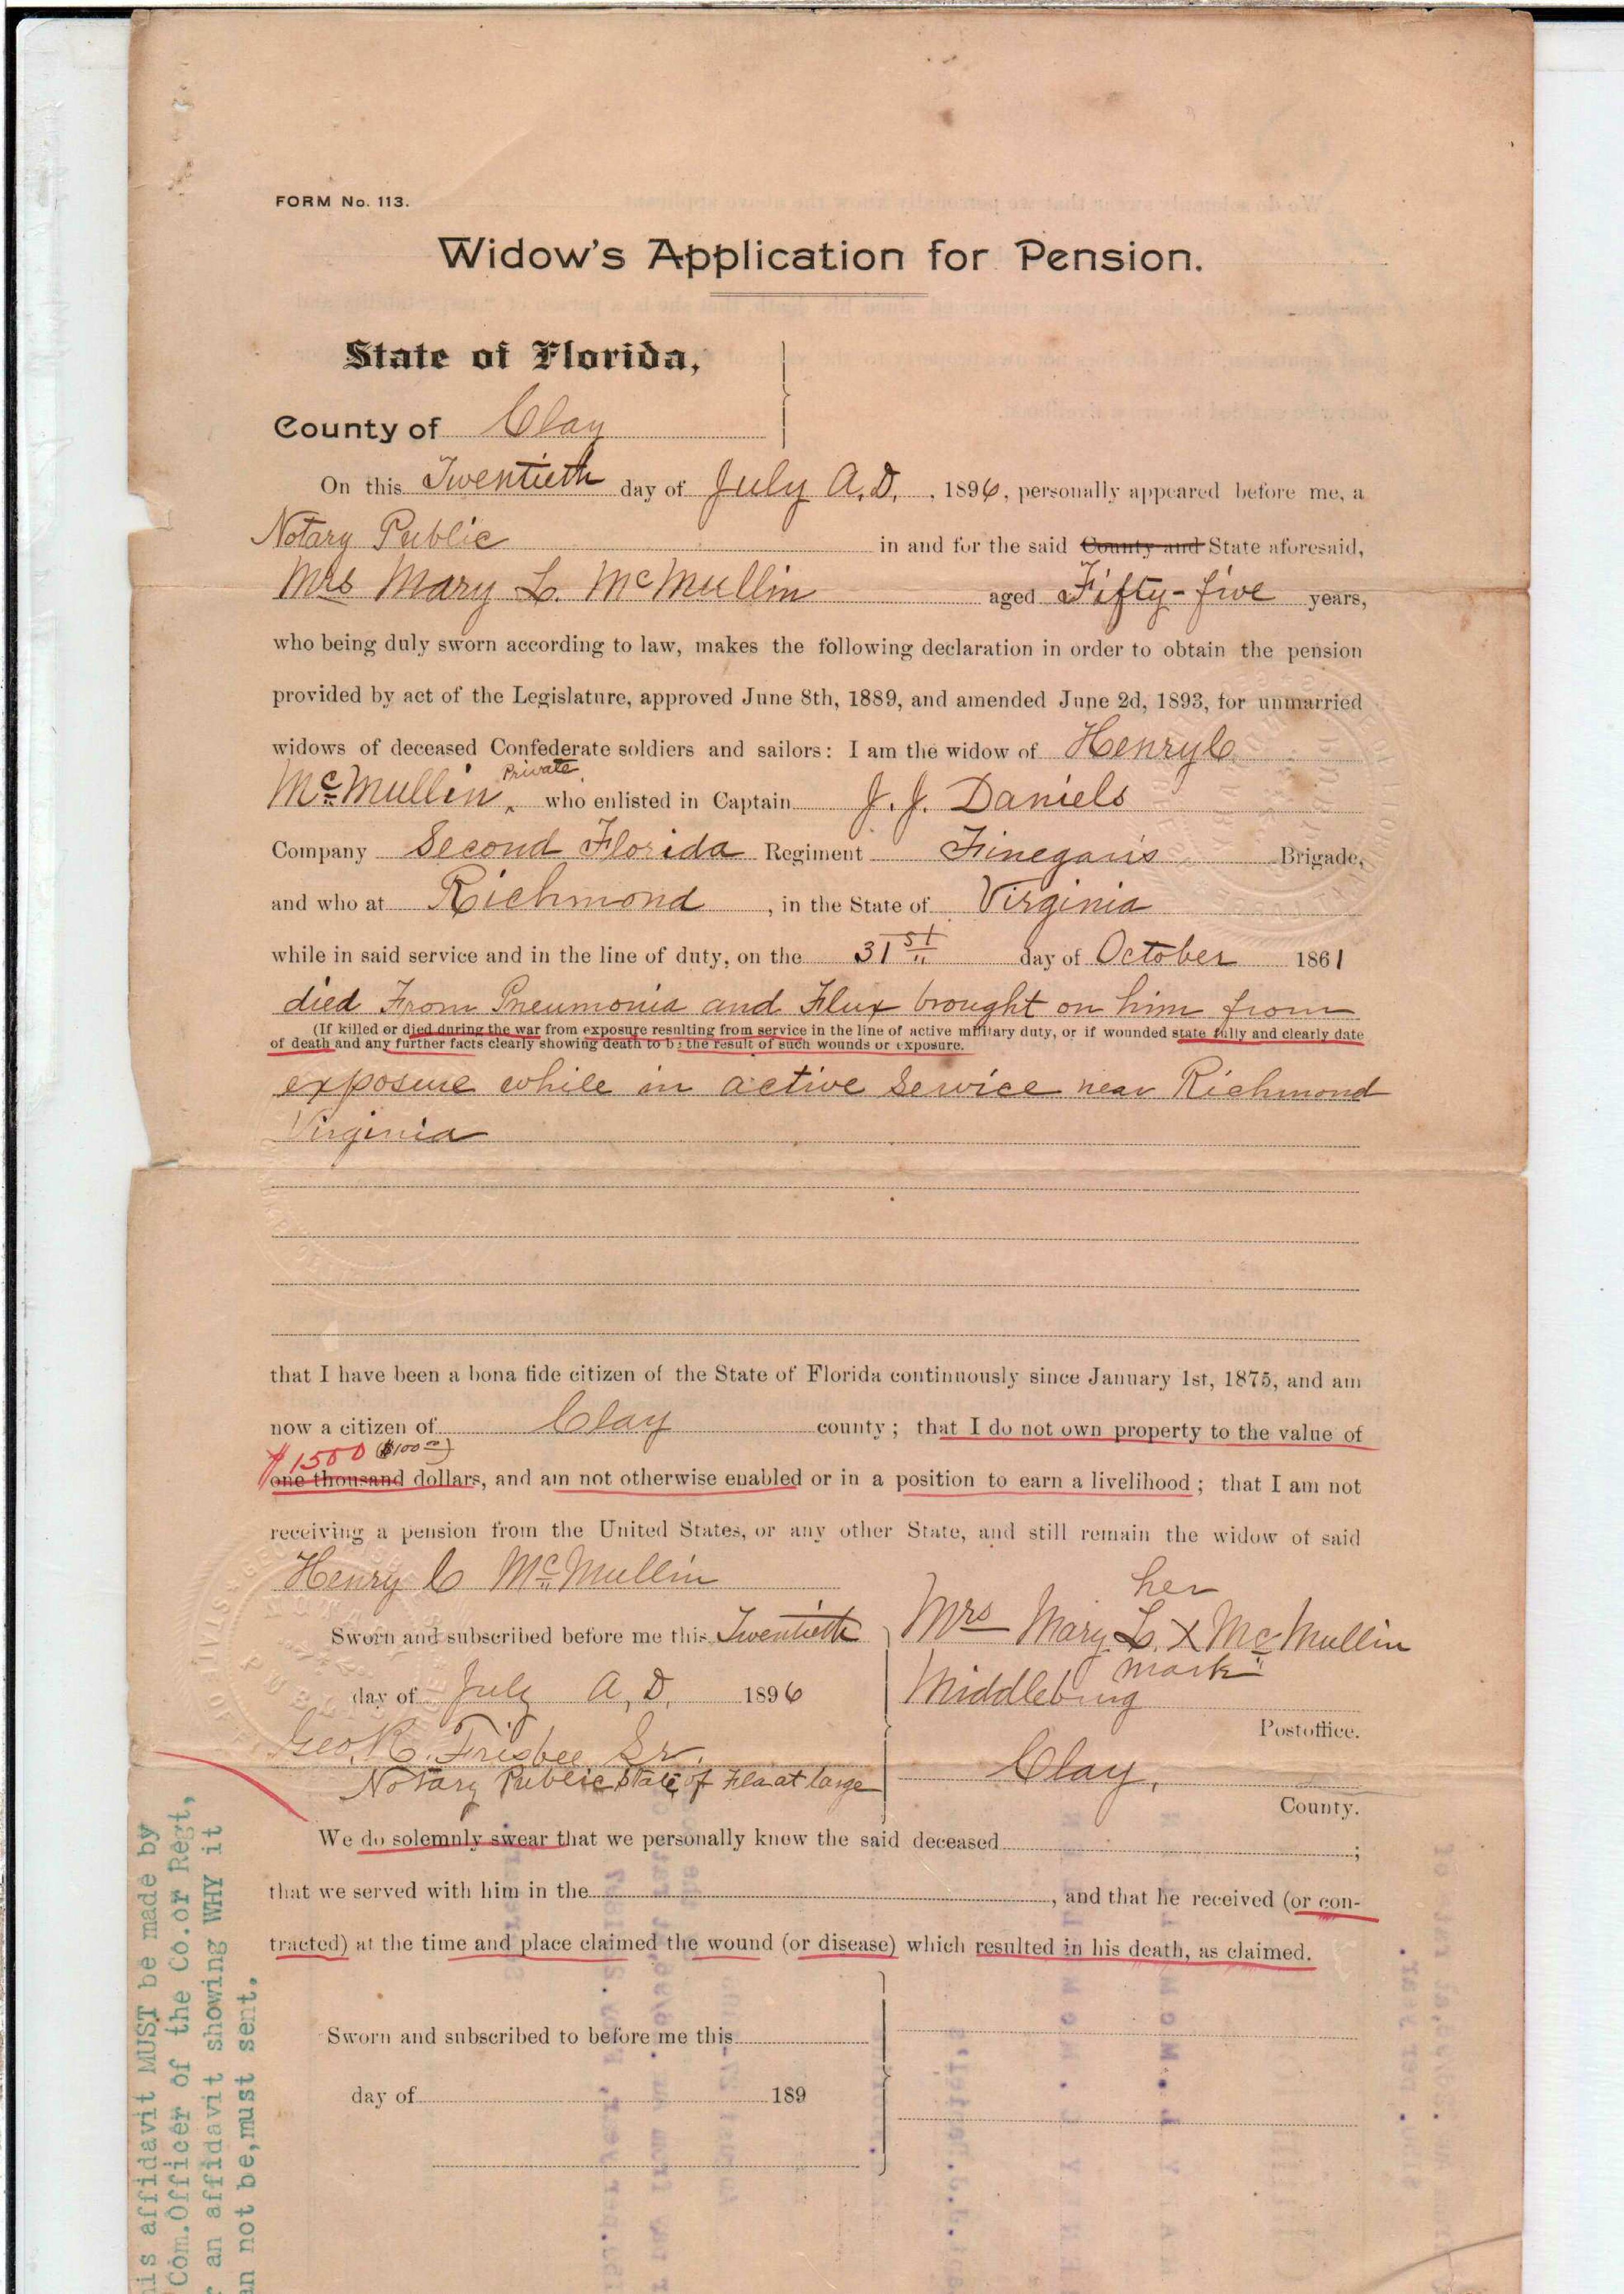 FORM No. 113.
Widow's Application for Pension.
State of Florida,
County of Clay
On this Twentieth day of July A.D., 1896, personally appeared before me, a
Notary Public in and for the said County and State aforesaid,
Mrs Mary L. McMullin aged Fifty-five years,
who being duly sworn according to law, makes the following declaration in order to obtain the pension
provided by act of the Legislature, approved June 8th, 1889, and amended June 2d, 1893, for unmarried
widows of deceased Confederate soldiers and sailors: I am the widow of Henry C
Private
McMullin, who enlisted in Captain J. J. Daniels
Company Second Florida Regiment Finegan's Brigade,
and who at Richmond, in the State of Virginia
while in said service and in the line of duty, on the 31st day of October 1861
died From Pneumonia and Flux brought on him from
(If killed or died during the war from exposure resulting from service in the line of active military duty, or if wounded state fully and clearly date
of death and any further facts clearly showing death to be the result of such wounds or exposure.
exposure while in active Service near Richmond
Virginia
that I have been a bona fide citizen of the State of Florida continuously since January 1st, 1875, and am
now a citizen of Clay county; that I do not own property to the value of
$1500 ($100 00)
one thousand dollars, and am not otherwise enabled or in a position to earn a livelihood; that I am not
receiving a pension from the United States, or any other State, and still remain the widow of said
Henry C McMullin
her
Sworn and subscribed before me this Twentieth Mrs Mary L. X McMullin
mark
day of July A.D. 1896 Middleburg
Postoffice.
Geo. R. Frisbee Sr.
Notary Public State of Fla at large Clay,
County.
We do solemnly swear that we personally knew the said deceased ;
that we served with him in the , and that he received (or con-
tracted) at the time and place claimed the wound (or disease) which resulted in his death, as claimed.
Sworn and subscribed to before me this
day of 189
affidavit MUST be made by
Com.Officer of the Co.or Regt,
an affidavit showing WHY it
not be,must sent.